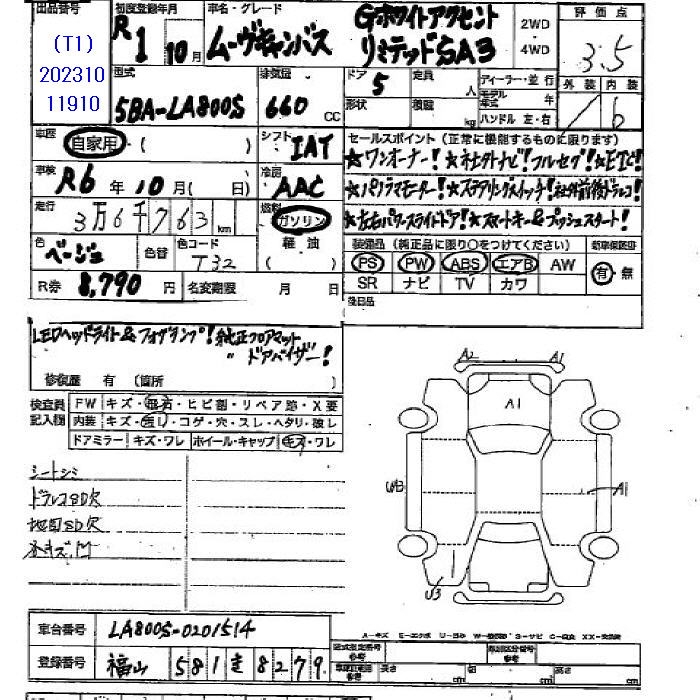 出品番号 初度登録年月 車名・グレード 評価点
(T1) R1 10月 ムーヴキャンバス Gホワイトアクセント 2WD
202310 リミテッドSA3 4WD 3.5
11910 型式 排気量 ドア 5 定員 人 ディーラー・並行 外装 内装
5BA-LA800S 660 CC 形状 積載 kg モデル年式 年 ハンドル 左・右 / 6
車歴 自家用・( シフト IAT セールスポイント (正常に機能するものに限ります)
車検 R6年10月( 日) 冷房 AAC ★ワンオーナー!★社外ナビ!フルセグ!★ETC!
走行 3万6千763km 燃料 ガソリン ★パノラマモニター!★ステアリングスイッチ!社外前後ドラレコ!
軽油 ★左右パワースライドドア!★スマートキー&プッシュスタート!
色 ベージュ 色替 色コード T32 ( ) 装備品 (純正品に限り○をつけてください) 新車保証書
R券 8,790円 名変期限 月 日 PS PW ABS エアB AW 有・無
SR ナビ TV カワ
後日品
LEDヘッドライト&フォグランプ!純正フロアマット
〃 ドアバイザー!
修復歴 有 (箇所 )
検査員 FW キズ・飛石・ヒビ割・リペア跡・X要
記入欄 内装 キズ・汚し・コゲ・穴・スレ・ヘタリ・破レ
ドアミラー キズ・ワレ ホイール・キャップ キズ・ワレ
A2 A1
A1
シートシミ
ドラレコSD欠
A1
地図SD欠
小キズ凹
U3
車台番号 LA800S-0201514
登録番号 福山 581 き 8279
A-キズ E-エクボ U-凹み
型式指定番号 類別区分番号
長さ cm 幅 cm 高さ cm